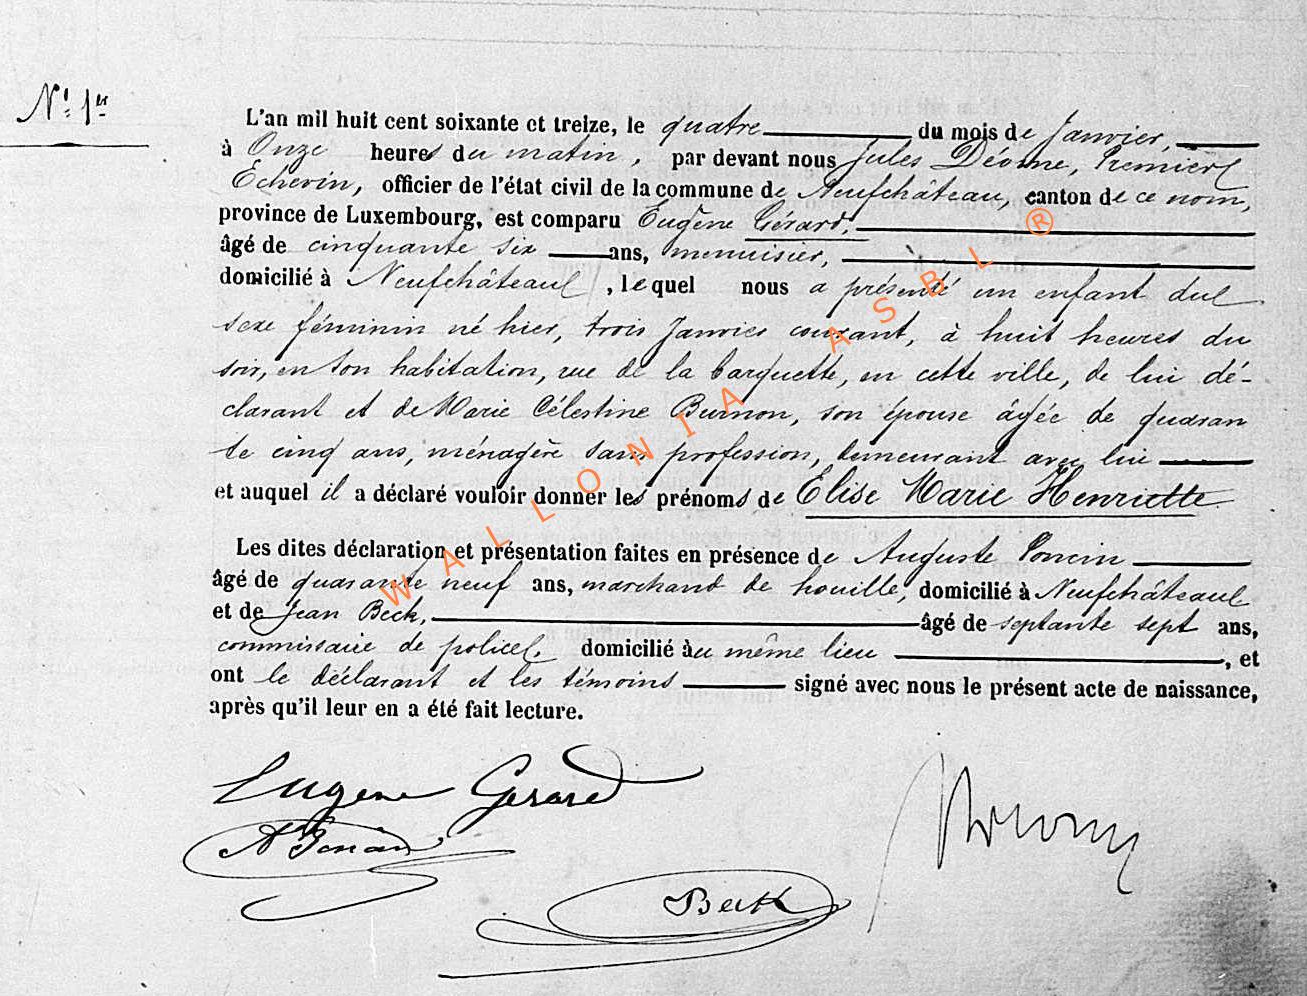 N.º 1er
L'an mil huit cent soixante et treize, le quatre du mois de Janvier,
à Onze heures du matin, par devant nous Jules Déome, Premier
Echevin, officier de l'état civil de la commune de Neufchâteau, canton de ce nom,
province de Luxembourg, est comparu Eugène Gérard,
âgé de cinquante six ans, menuisier,
domicilié à Neufchâteau, lequel nous a présenté un enfant du
sexe féminin né hier, trois Janvier courant, à huit heures du
soir, en son habitation, rue de la barquette, en cette ville, de lui dé-
clarant et de Marie Célestine Burnon, son épouse âgée de quaran
te cinq ans, ménagère sans profession, demeurant avec lui
et auquel il a déclaré vouloir donner les prénoms de Elise Marie Henriette
Les dites déclaration et présentation faites en présence de Auguste Poncin
âgé de quarante neuf ans, marchand de houille, domicilié à Neufchâteau
et de Jean Beck, âgé de septante sept ans,
commissaire de police, domicilié au même lieu, et
ont le déclarant et les témoins signé avec nous le présent acte de naissance,
après qu'il leur en a été fait lecture.
Eugène Gerard
Beck
WALLONIA ASBL ®